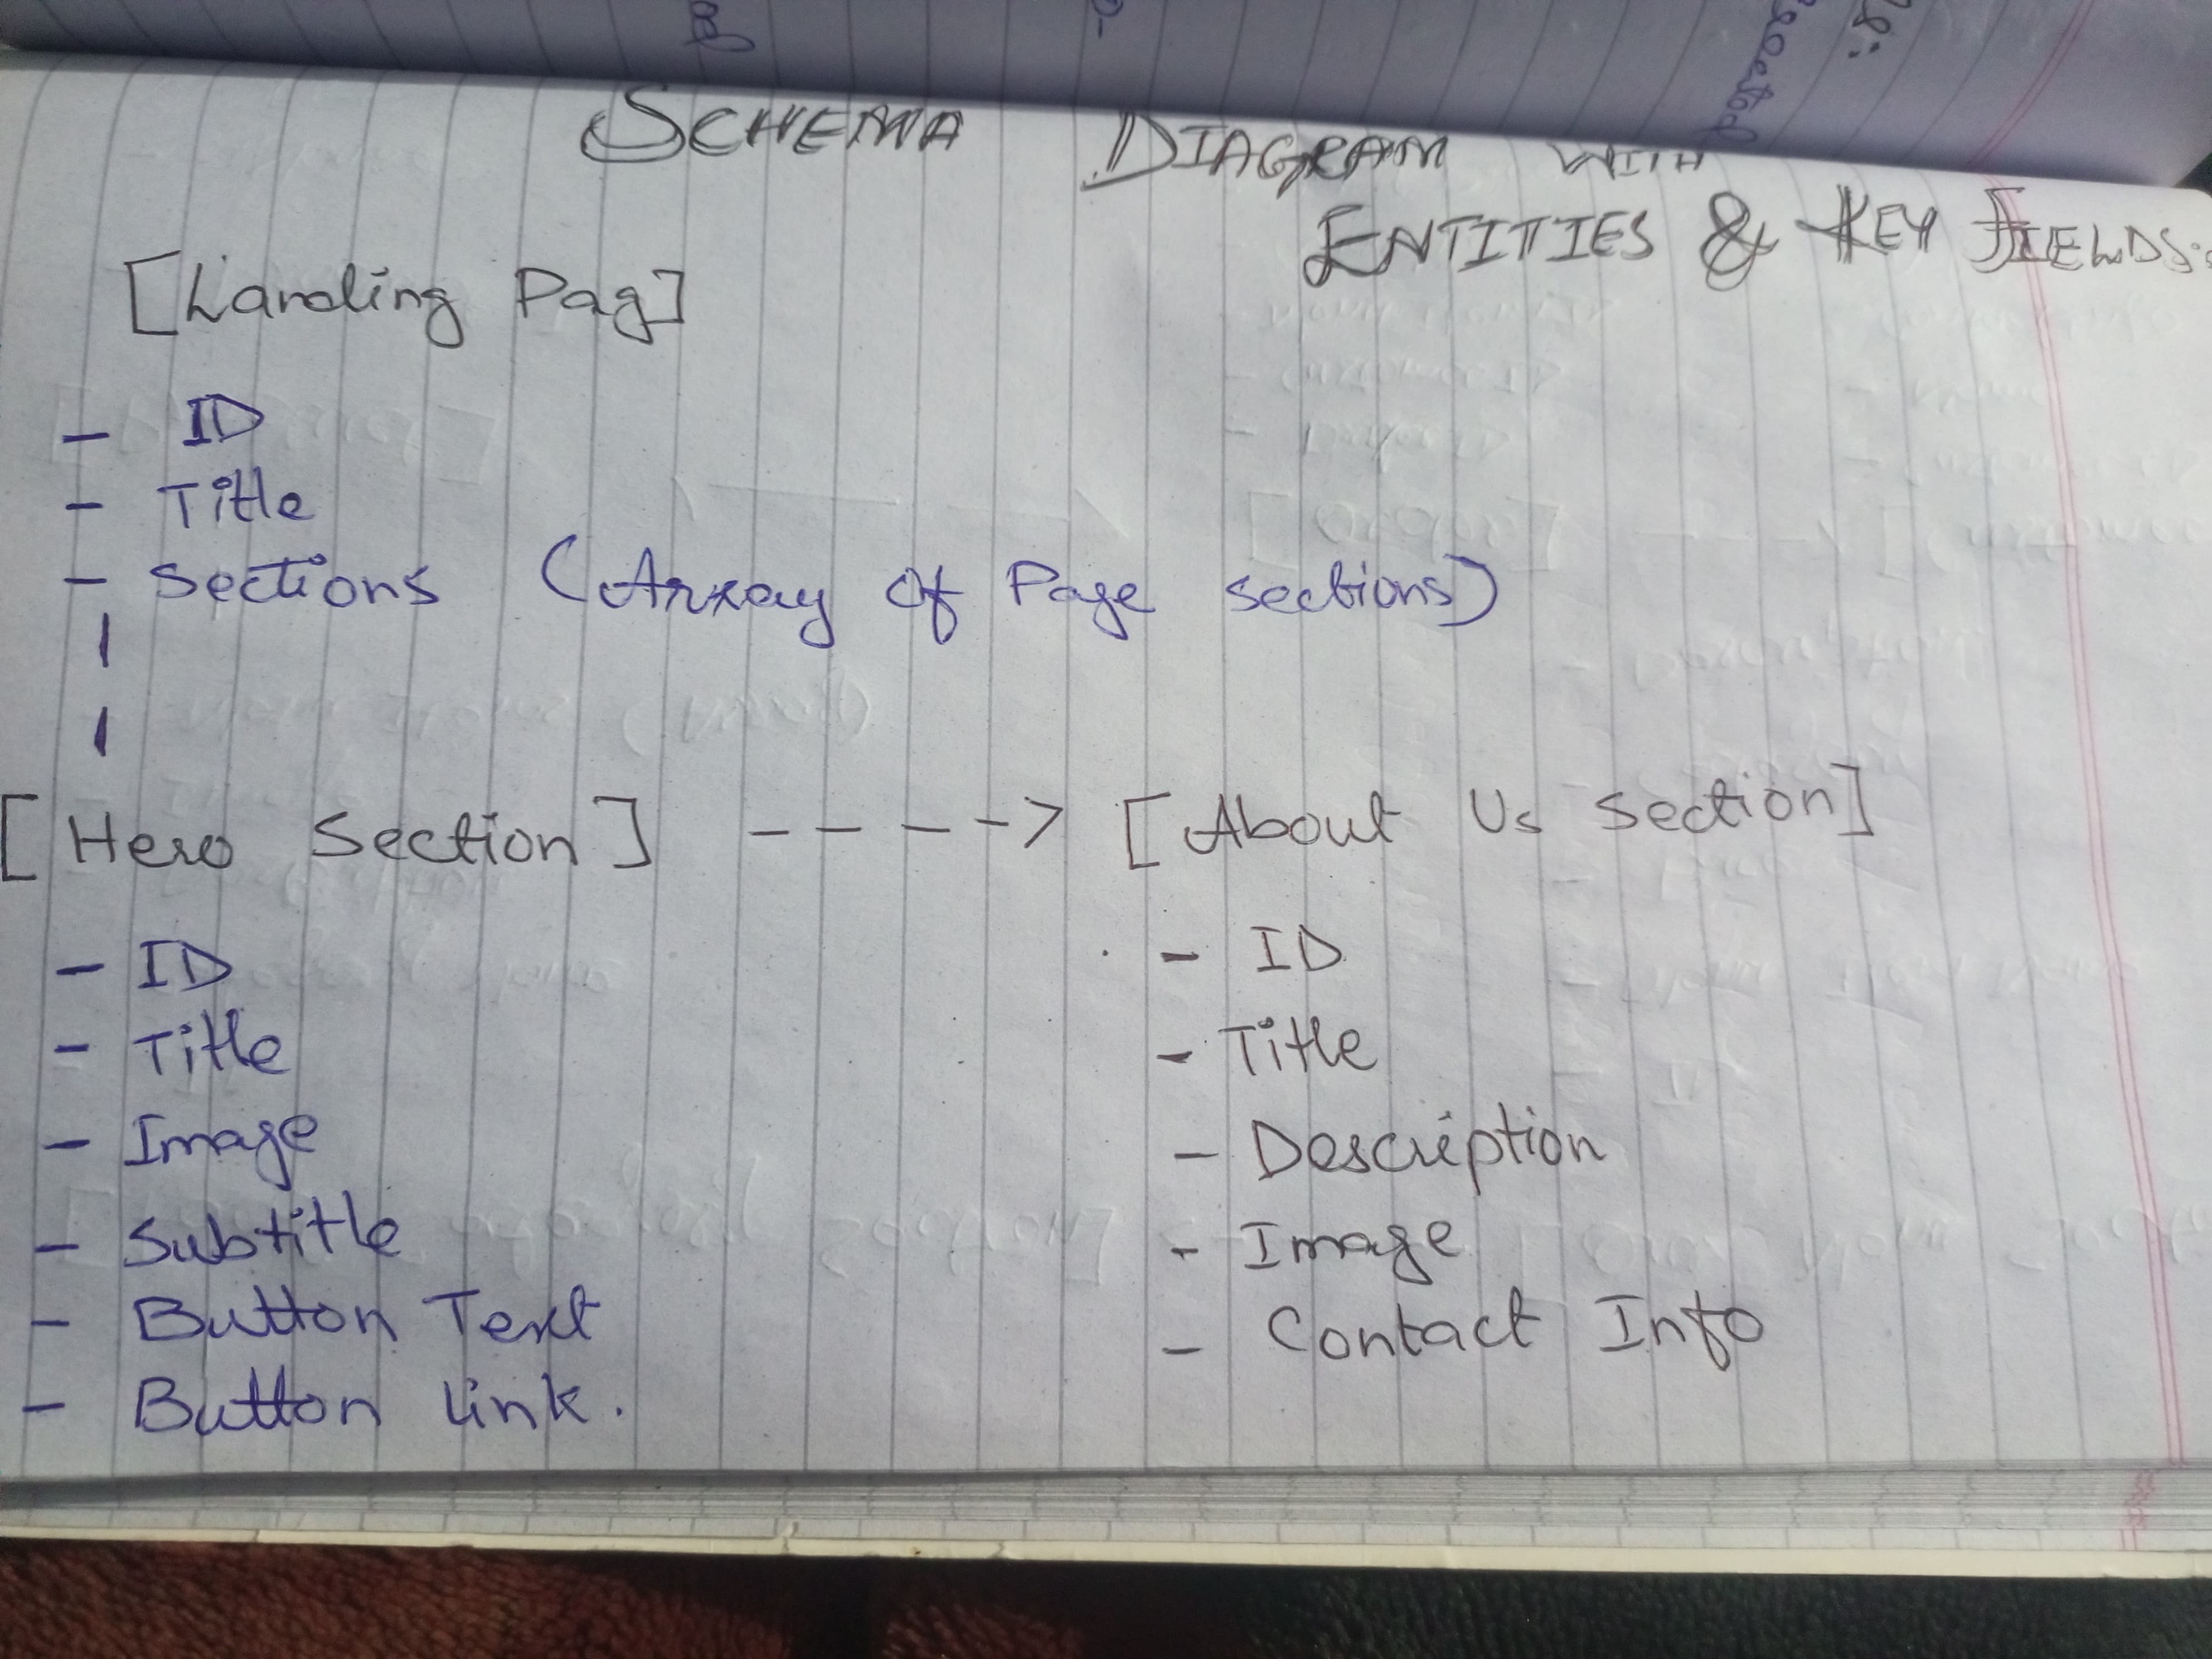 SCHEMA DIAGRAM WITH
ENTITIES & KEY FIELDS:
[Landing Pag]
- ID
- Title
- Sections (Array of Page sections)
[Hero Section] ----> [About Us Section]
- ID
- Title
- Image
- Subtitle
- Button Text
- Button Link.
- ID
- Title
- Description
- Image
- Contact Info